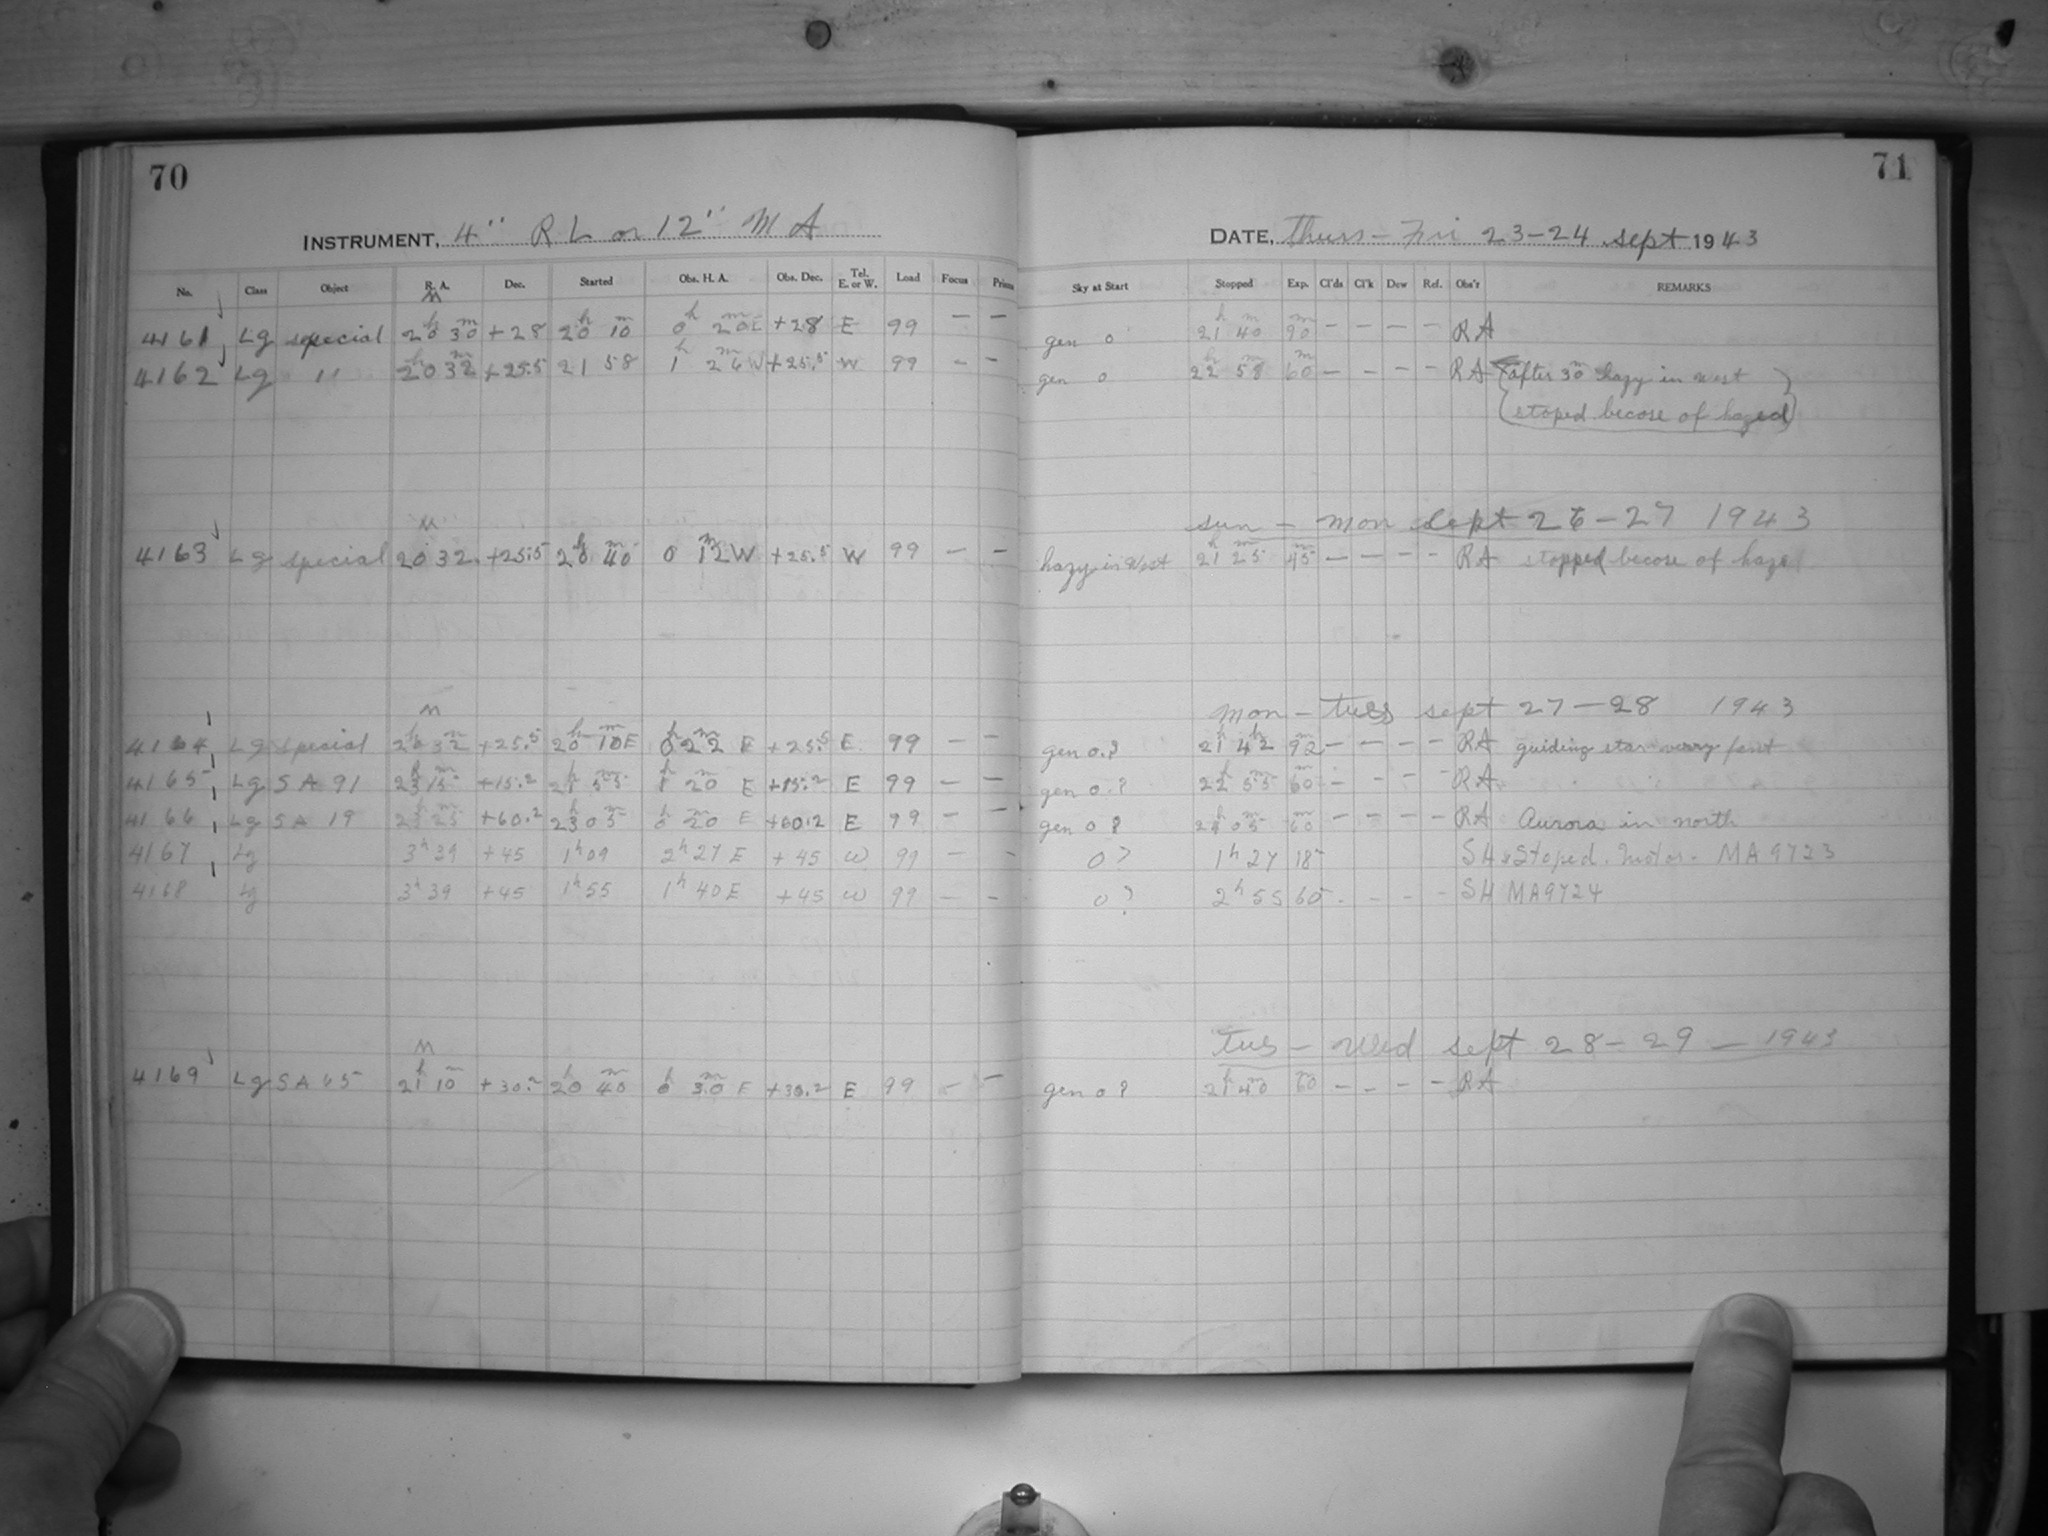 70
INSTRUMENT, 4" R L or 12" M A
No. Class Object R.A. Dec. Started Obs. H. A. Obs. Dec. Tel. E. or W. Load Focus Prisms
4161 Lg special 20h 30m +28 20h 10m 0h 20m E +28 E 99 — —
4162 Lg " 20h 32m +25.5 21 58 1h 26m W +25.5 W 99 — —
4163 Lg special 20 32 +25.5 20h 40m 0 12m W +25.5 W 99 — —
4164 Lg special 20h 32m +25.5 20h 10m E 0h 22m E +25.5 E 99 — —
4165 Lg S A 91 23h 15m +15.2 21h 55m 1h 20m E +15.2 E 99 — —
4166 Lg S A 19 23h 25m +60.2 23h 05m 0h 20m E +60.2 E 99 — —
4167 Lg 3h 39 +45 1h 09 2h 27 E +45 W 99 — —
4168 Lg 3h 39 +45 1h 55 1h 40 E +45 W 99 — —
4169 Lg S A 65 21h 10m +30.2 20h 40m 0h 30m E +30.2 E 99 — —
71
DATE, Thurs — Fri 23-24 sept 1943
Sky at Start Stopped Exp. Cl'ds Cl'k Dew Ref. Obs'r REMARKS
gen 0 21h 40m 90m — — — — R A
gen 0 22h 58m 60m — — — — R A after 30m hazy in west
stoped becose of hazed
sun — mon sept 26-27 1943
hazy in West 21h 25m 45m — — — — R A stopped becose of haze
mon — tues sept 27-28 1943
gen o.? 21h 42 92m — — — — R A guiding star verry fent
gen o.? 22h 55m 60m — — — — R A
gen o ? 24h 05m 60m — — — — R A Aurora in north
o? 1h 27 18 SH Stoped. motor. MA 9723
o? 2h 55 60 - - - - SH MA9724
Tus — Wed sept 28-29 — 1943
gen o ? 21h 40m 60 — — — — R A